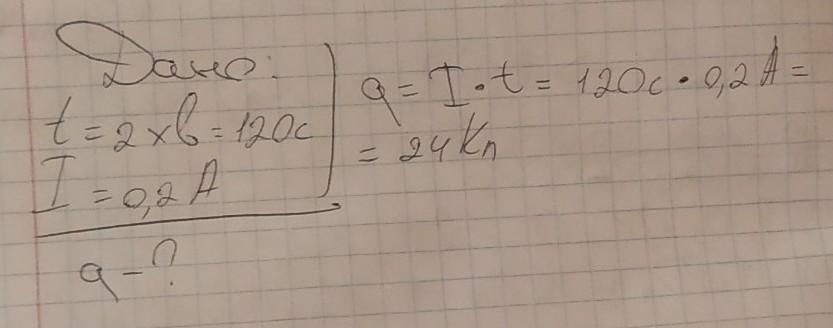 Дано:
t = 2 хв = 120с
I = 0,2 А
q - ?
q = I · t = 120с · 0,2 А =
= 24 Кл